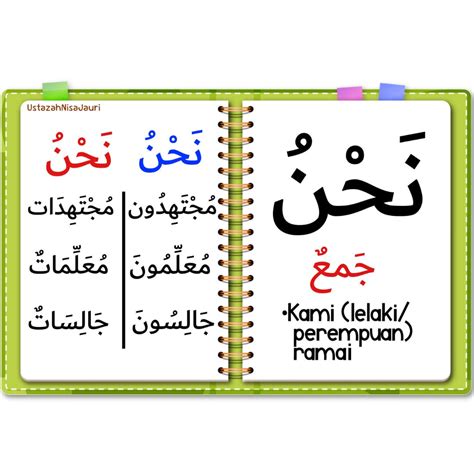 UstazahNisaJauri
نَحْنُ نَحْنُ
مُجْتَهِدُون مُجْتَهِدَات
مُعَلِّمُونَ مُعَلِّمَاتٌ
جَالِسُونَ جَالِسَاتٌ
نَحْنُ
جَمعٌ
•Kami (lelaki/
perempuan)
ramai